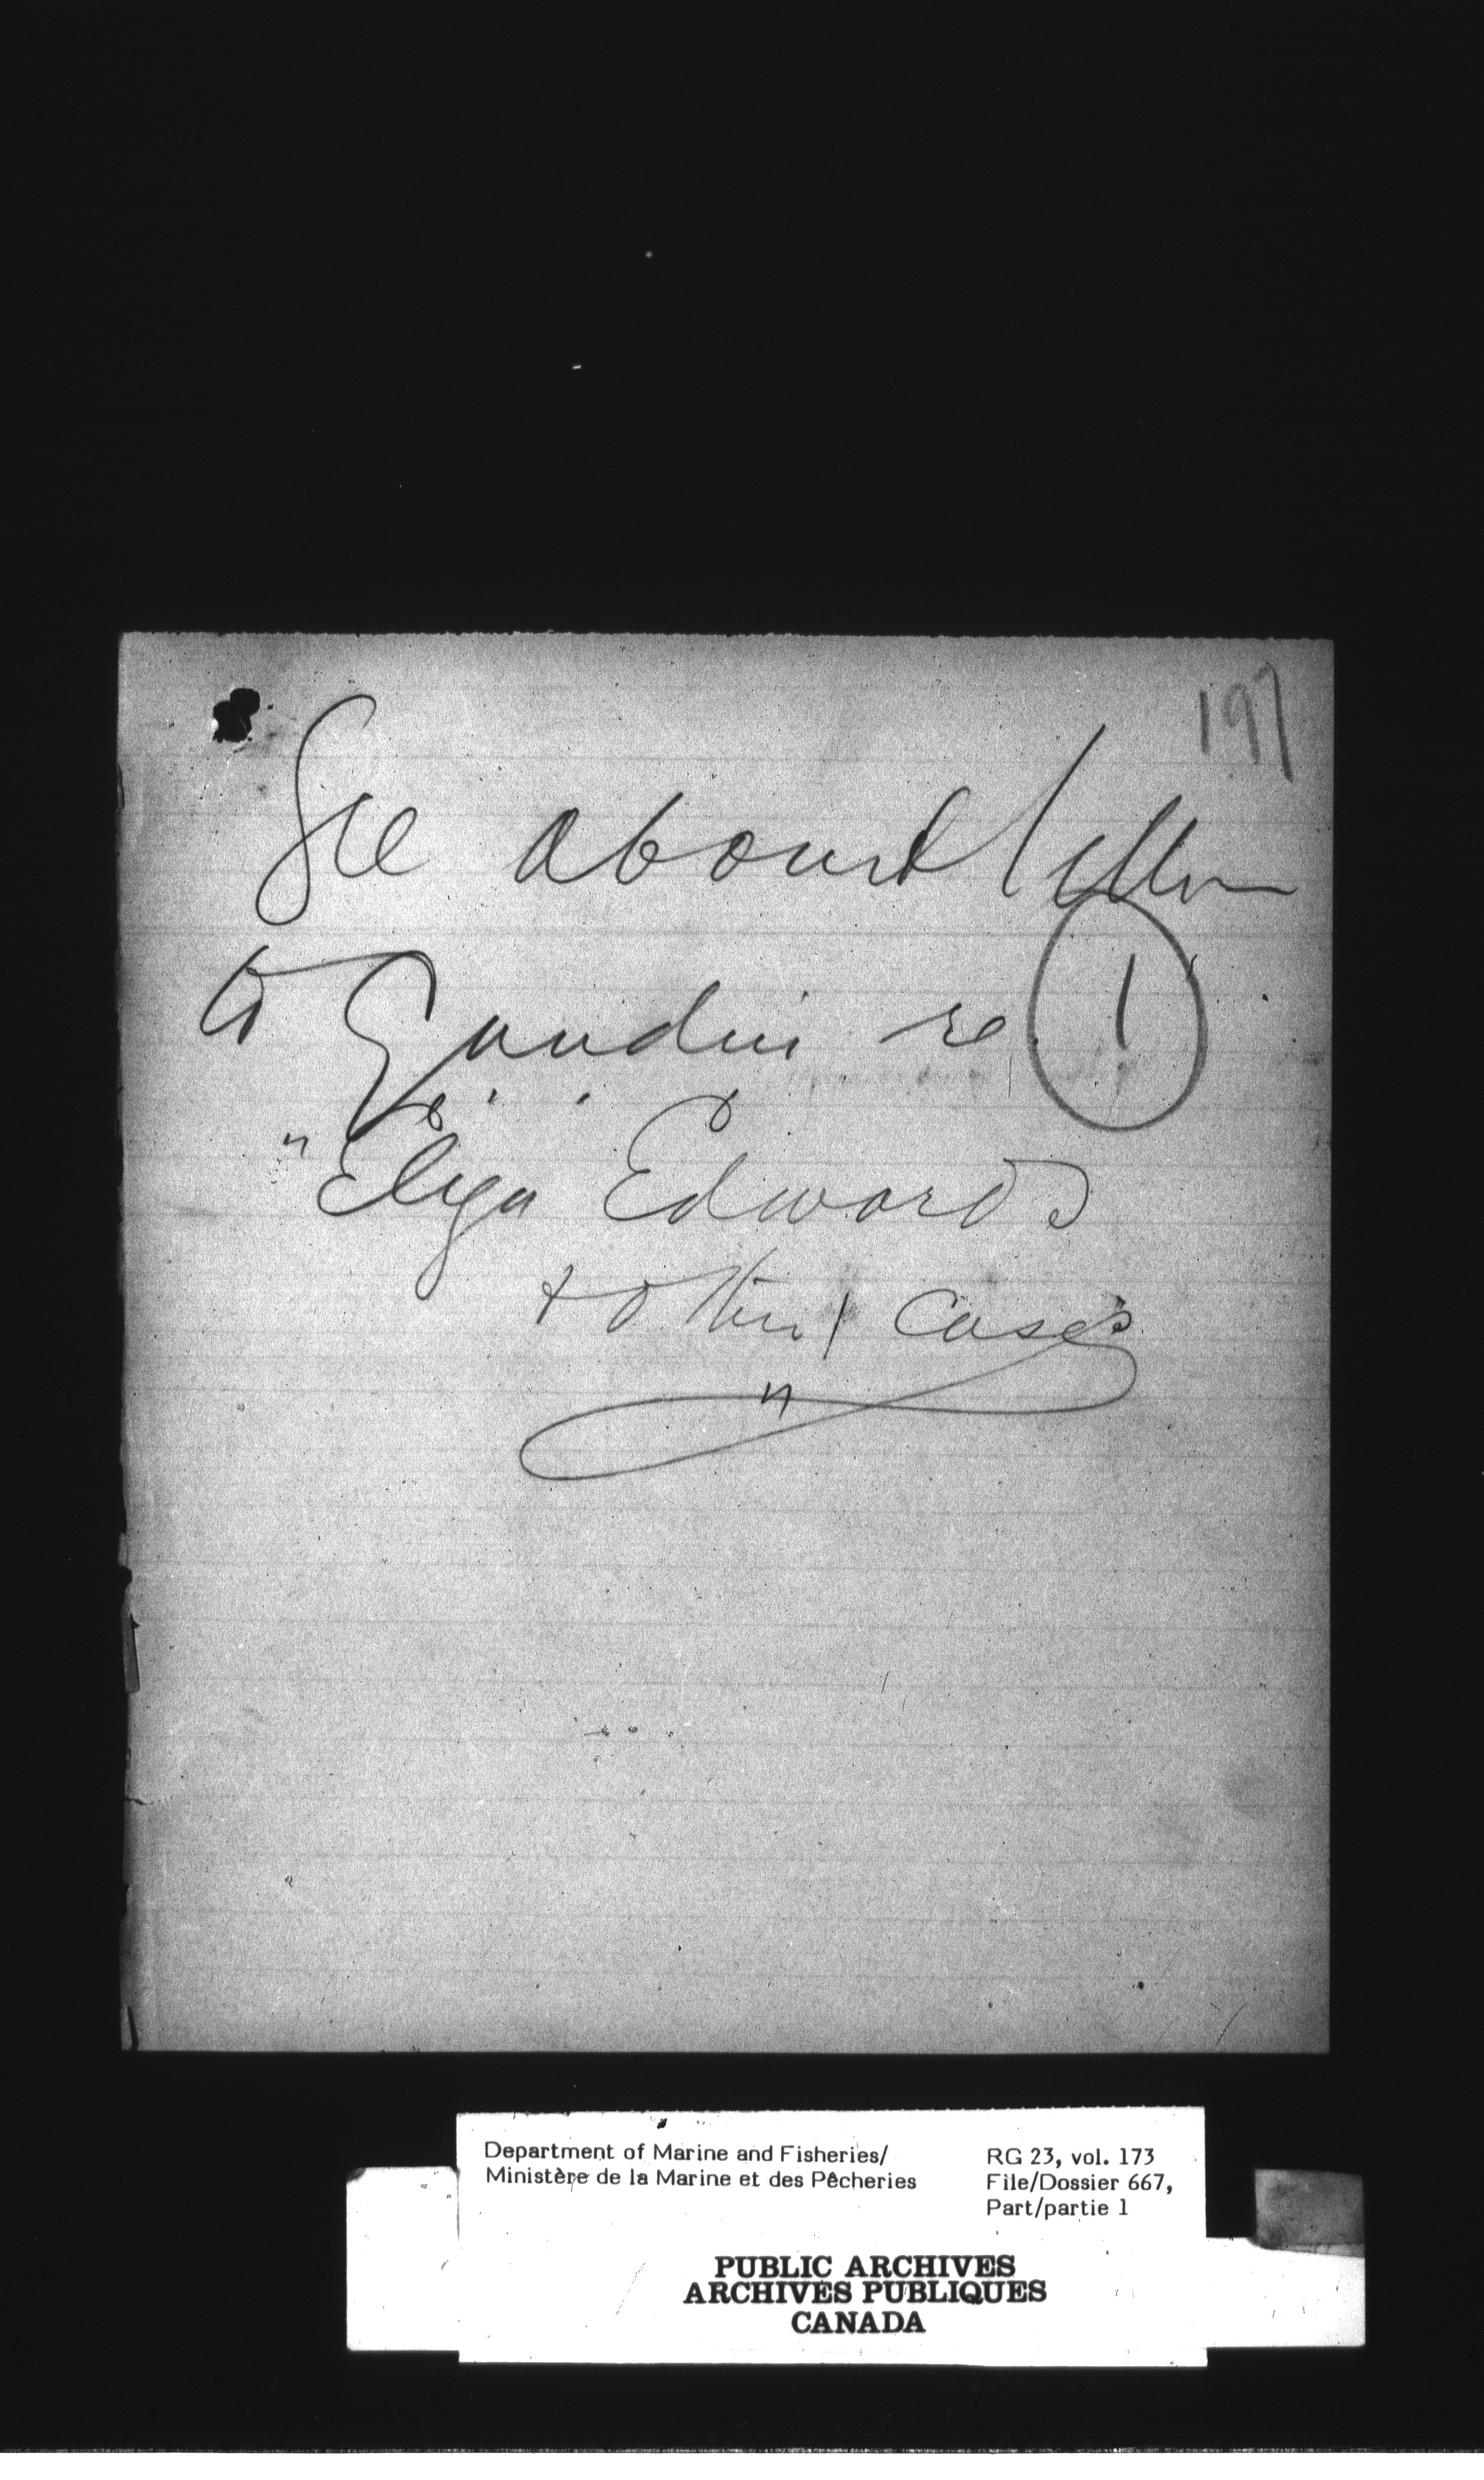 197
See about letter
to Gaudin re ①
"Eliza Edwards
+ other cases
"
Department of Marine and Fisheries/
Ministère de la Marine et des Pêcheries
RG 23, vol. 173
File/Dossier 667,
Part/partie 1
PUBLIC ARCHIVES
ARCHIVES PUBLIQUES
CANADA